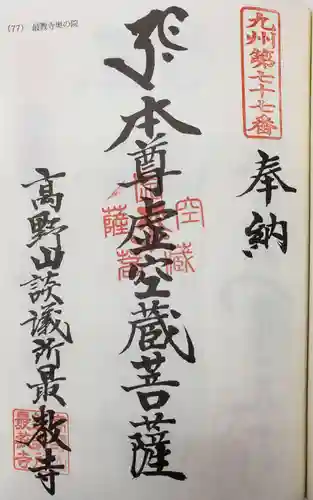 (77) 最教寺奥の院
九州第七十七番
奉納
本尊虚空蔵菩薩
高野山談議所最教寺